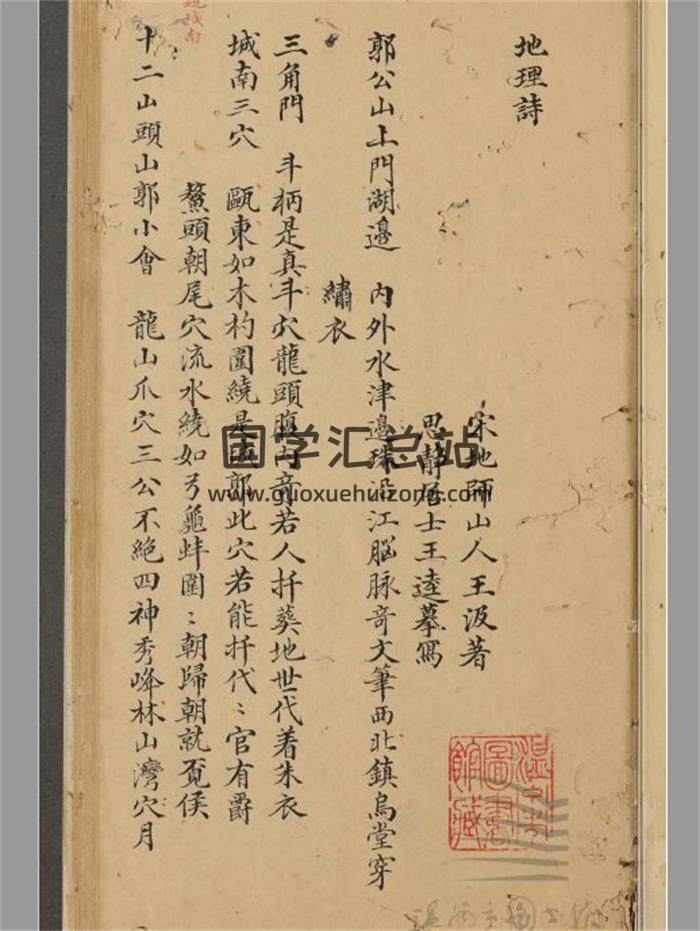 地理詩
宋地師山人王汲著
思靜居士王逵摹寫
郭公山上門湖邊 内外水津邊珠沿江脳脉奇文筆西北鎮烏堂穿
繡衣
三角門 斗柄是真斗穴龍頭腹内奇若人扦葬地世代着朱衣
城南三穴 甌東如木杓圍繞是城郭此穴若能扦代〻官有爵
鰲頭朝尾穴流水繞如弓龜蚌圍〻朝歸朝就覓侯
十二山頭山郭小會 龍山爪穴三公不絶四神秀峰林山灣穴月
城南
温州市圖書館藏
国学汇总站
www.guoxuehuizong.com